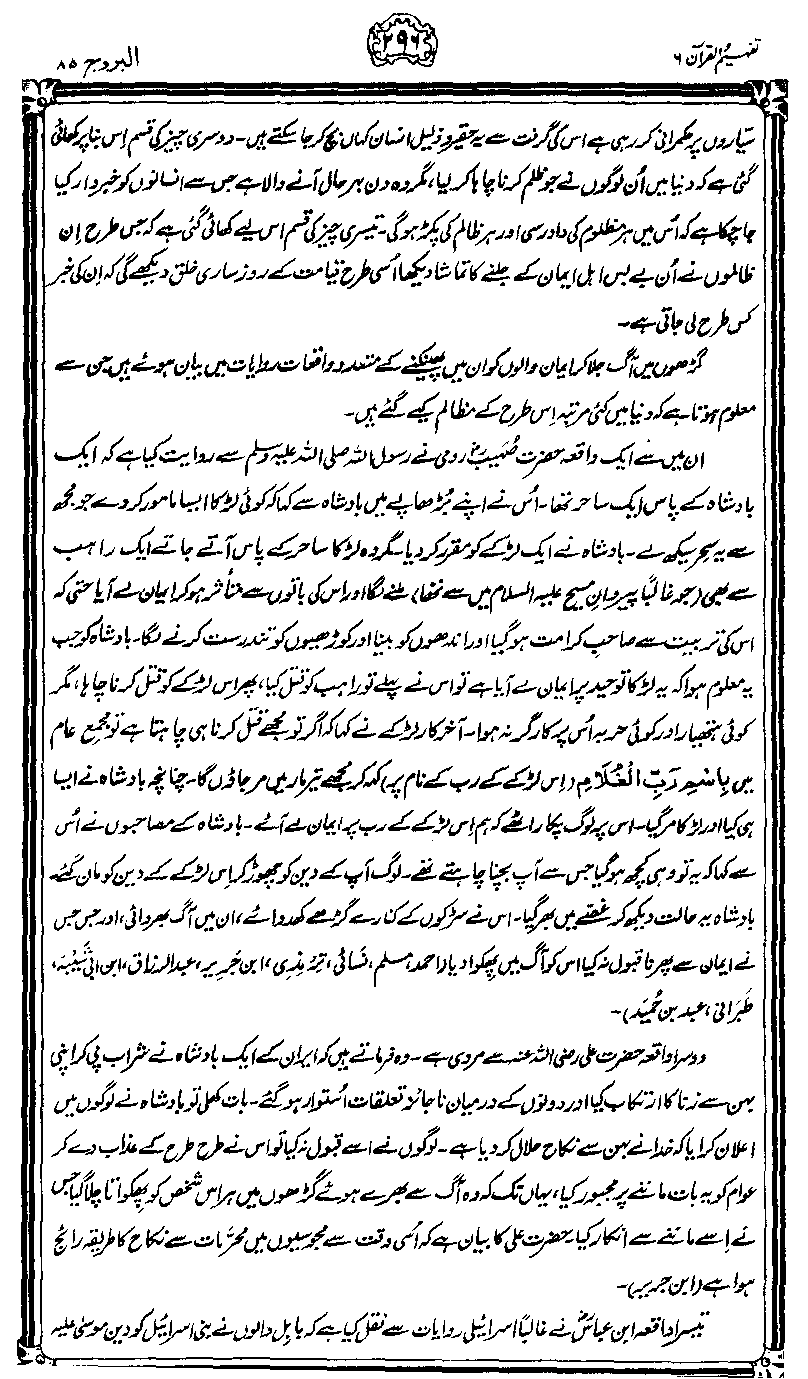 تفہیم القرآن ۶
۲۹۶
البروج ۸۵
سیّاروں پر حکمرانی کر رہی ہے اس کی گرفت سے یہ حقیر و ذلیل انسان کہاں بچ کر جا سکتے ہیں۔ دوسری چیز کی قسم اِس بنا پر کھائی
گئی ہے کہ دنیا میں اُن لوگوں نے جو ظلم کرنا چاہا کر لیا، مگر وہ دن بہرحال آنے والا ہے جس سے انسانوں کو خبردار کیا
جا چکا ہے کہ اُس میں ہر مظلوم کی دادرسی اور ہر ظالم کی پکڑ ہو گی۔ تیسری چیز کی قسم اس لیے کھائی گئی ہے کہ جس طرح اِن
ظالموں نے اُن بے بس اہل ایمان کے جلنے کا تماشا دیکھا اُسی طرح قیامت کے روز ساری خلق دیکھے گی کہ اِن کی خبر
کس طرح لی جاتی ہے۔
گڑھوں میں آگ جلا کر ایمان والوں کو ان میں پھینکنے کے متعدد واقعات روایات میں بیان ہوئے ہیں جن سے
معلوم ہوتا ہے کہ دنیا میں کئی مرتبہ اِس طرح کے مظالم کیے گئے ہیں۔
ان میں سے ایک واقعہ حضرت صُہَیب رومی نے رسول اللہ صلی اللہ علیہ وسلم سے روایت کیا ہے کہ ایک
بادشاہ کے پاس ایک ساحر تھا۔ اُس نے اپنے بُڑھاپے میں بادشاہ سے کہا کہ کوئی لڑکا ایسا مامور کر دے جو مجھ
سے یہ سِحر سیکھ لے۔ بادشاہ نے ایک لڑکے کو مقرر کر دیا۔ مگر وہ لڑکا ساحر کے پاس آتے جاتے ایک راہب
سے بھی (جو غالباً پیروانِ مسیح علیہ السلام میں سے تھا) ملنے لگا اور اس کی باتوں سے متأثر ہو کر ایمان لے آیا حتی کہ
اس کی تربیت سے صاحبِ کرامت ہو گیا اور اندھوں کو بینا اور کوڑھیوں کو تندرست کرنے لگا۔ بادشاہ کو جب
یہ معلوم ہوا کہ یہ لڑکا توحید پر ایمان لے آیا ہے تو اس نے پہلے تو راہب کو قتل کیا، پھر اس لڑکے کو قتل کرنا چاہا، مگر
کوئی ہتھیار اور کوئی حربہ اُس پر کارگر نہ ہوا۔ آخرکار لڑکے نے کہا کہ اگر تو مجھے قتل کرنا ہی چاہتا ہے تو مجمعِ عام
میں بِاسْمِ رَبِّ الْغُلَامِ (اِس لڑکے کے رب کے نام پر) کہہ کر مجھے تیر مار میں مر جاؤں گا۔ چنانچہ بادشاہ نے ایسا
ہی کیا اور لڑکا مر گیا۔ اس پر لوگ پکار اٹھے کہ ہم اِس لڑکے کے رب پر ایمان لے آئے۔ بادشاہ کے مصاحبوں نے اُس
سے کہا کہ یہ تو وہی کچھ ہو گیا جس سے آپ بچنا چاہتے تھے۔ لوگ آپ کے دین کو چھوڑ کر اِس لڑکے کے دین کو مان گئے۔
بادشاہ یہ حالت دیکھ کر غصّے میں بھر گیا۔ اس نے سڑکوں کے کنارے گڑھے کھدوائے، ان میں آگ بھروائی، اور جس جس
نے ایمان سے پھرنا قبول نہ کیا اس کو آگ میں پھکوا دیا (احمد، مسلم، نَسَائی، تِرمِذی، ابن جَریر، عبد الرزاق، ابن ابی شَیبَہ،
طَبَرانی، عبد بن حُمَید)۔
دوسرا واقعہ حضرت علی رضی اللہ عنہ سے مروی ہے۔ وہ فرماتے ہیں کہ ایران کے ایک بادشاہ نے شراب پی کر اپنی
بہن سے زنا کا ارتکاب کیا اور دونوں کے درمیان ناجائز تعلقات اُستوار ہو گئے۔ بات کھلی تو بادشاہ نے لوگوں میں
اعلان کرا یا کہ خدا نے بہن سے نکاح حلال کر دیا ہے۔ لوگوں نے اسے قبول نہ کیا تو اس نے طرح طرح کے عذاب دے کر
عوام کو یہ بات ماننے پر مجبور کیا، یہاں تک کہ وہ آگ سے بھرے ہوئے گڑھوں میں ہر اس شخص کو پھکواتا چلا گیا جس
نے اِسے ماننے سے انکار کیا۔ حضرت علی کا بیان ہے کہ اُسی وقت سے مجوسیوں میں محرَّمات سے نکاح کا طریقہ رائج
ہوا ہے (ابن جریر)۔
تیسرا واقعہ ابن عباسؓ نے غالباً اسرائیلی روایات سے نقل کیا ہے کہ بابل والوں نے بنی اسرائیل کو دین موسٰی علیہ